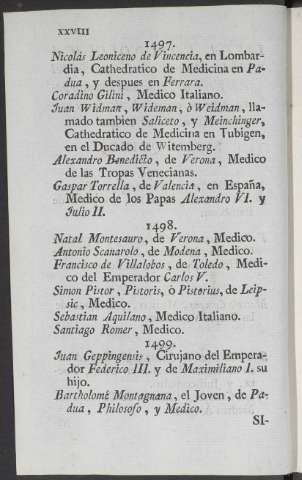 XXVIII
1497.
Nicolás Leoniceno de Vincencia, en Lombar-
dia, Cathedratico de Medicina en Pa-
dua, y despues en Ferrara.
Coradino Gilini, Medico Italiano.
Juan Widman, Wideman, ò Weidman, lla-
mado tambien Saliceto, y Meinchinger,
Cathedratico de Medicina en Tubigen,
en el Ducado de Witemberg.
Alexandro Benedicto, de Verona, Medico
de las Tropas Venecianas.
Gaspar Torrella, de Valencia, en España,
Medico de los Papas Alexandro VI. y
Julio II.
1498.
Natal Montesauro, de Verona, Medico.
Antonio Scanarolo, de Modena, Medico.
Francisco de Villalobos, de Toledo, Medi-
co del Emperador Carlos V.
Simon Pistor, Pistoris, ò Pistorius, de Leip-
sic, Medico.
Sebastian Aquilano, Medico Italiano.
Santiago Romer, Medico.
1499.
Juan Geppingensis, Cirujano del Empera-
dor Federico III. y de Maximiliano I. su
hijo.
Bartholomé Montagnana, el Joven, de Pa-
dua, Philosofo, y Medico.
SI-